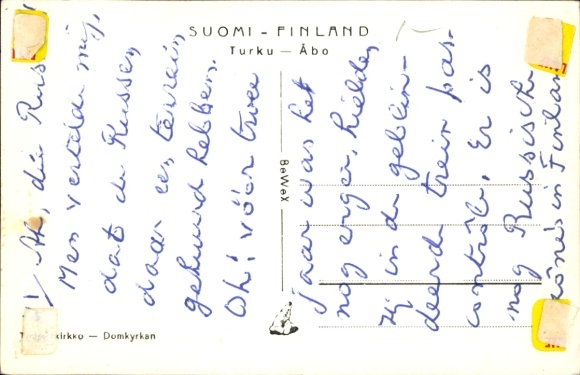 SUOMI - FINLAND
Turku — Åbo
BeWeX
kirkko — Domkyrkan
1/ Ah, die Rus
Men vertelde mij,
dat de Russen
daar een terrein
gehuurd hebben.
Oh! vóór twee
jaar was het
nog erger, hielden
zij in de geblin-
deerde trein pas-
contrôle. Er is
nog Russische
zône in Finland